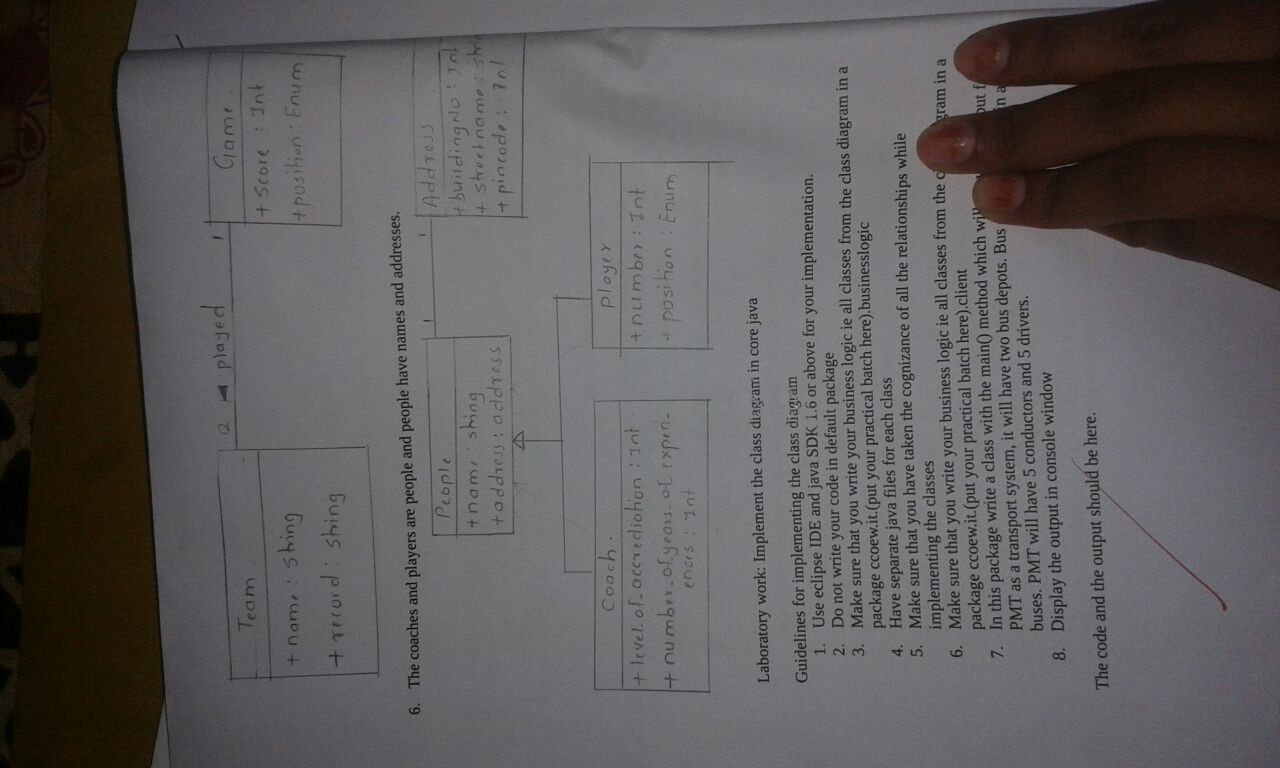 Team
+ name : string
+ record : string
2 ◄ played 1
Game
+ score : Int
+position : Enum
6. The coaches and players are people and people have names and addresses.
People
+name : string
+address : address
1 1
Address
+buildingNo : Int
+ streetname : stri
+ pincode : Int
Coach.
+ level_of_accrediation : Int.
+ number_of_years_of_experi-
ences : Int
Player
+number : Int
+ position : Enum
Laboratory work: Implement the class diagram in core java
Guidelines for implementing the class diagram
1. Use eclipse IDE and java SDK 1.6 or above for your implementation.
2. Do not write your code in default package
3. Make sure that you write your business logic ie all classes from the class diagram in a
package ccoew.it.(put your practical batch here).businesslogic
4. Have separate java files for each class
5. Make sure that you have taken the cognizance of all the relationships while
implementing the classes
6. Make sure that you write your business logic ie all classes from the gram in a
package ccoew.it.(put your practical batch here).client
7. In this package write a class with the main() method which will put f
PMT as a transport system, it will have two bus depots. Bus in a
buses. PMT will have 5 conductors and 5 drivers.
8. Display the output in console window
The code and the output should be here.